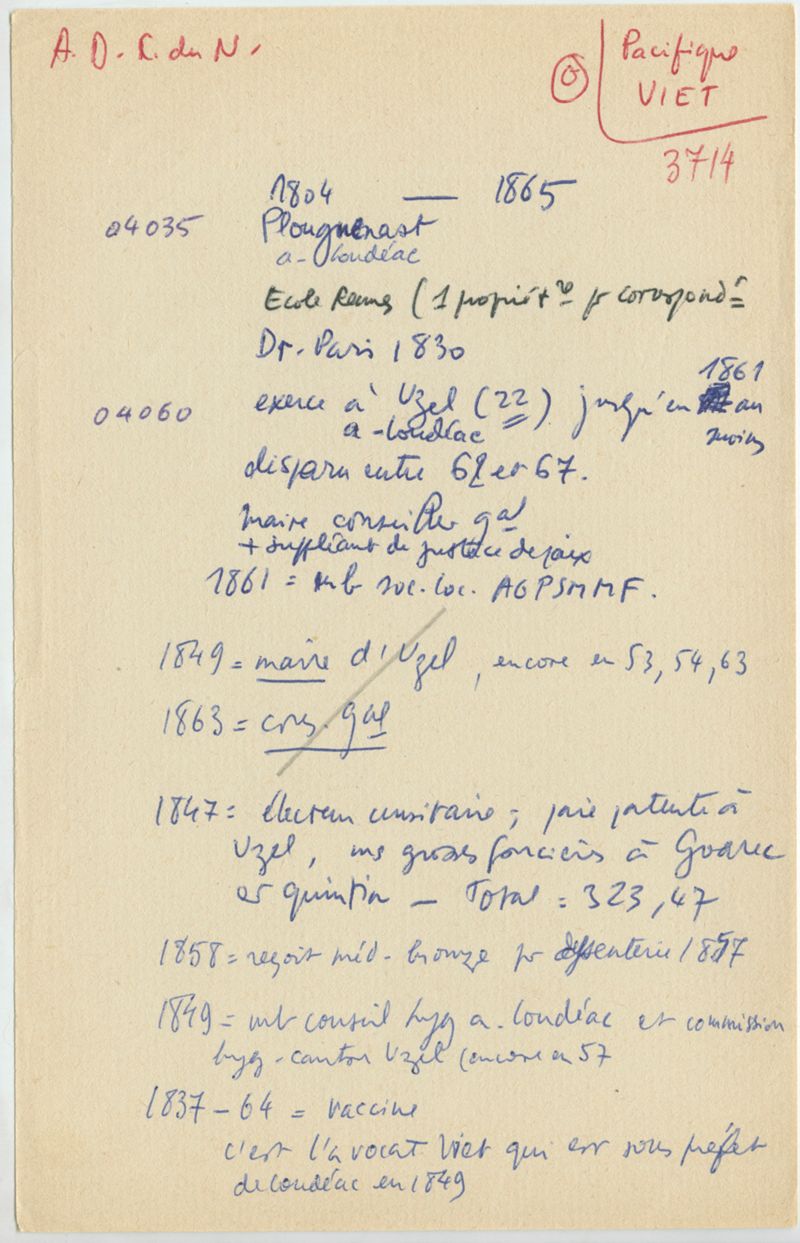 A. D. C. du N.
Pacifique
VIET
3714
1804 — 1865
04035 Plouguenast
a - Loudéac
Ecole Rennes (1 propriét re pr correspond
Dr. Paris 1830
1861
04060 exerce à Uzel (22) jusqu'en au
a - Loudéac moins
disparu entre 62 et 67.
maire conseiller gal
+ suppléant de justice de paix
1861 = mb soc. loc. AGPSMMF.
1849 = maire d'Uzel, encore en 53, 54, 63
1863 = cons. gal
1847 = électeur censitaire ; paie patente à
Uzel, mq grosses foncières à Goarec
et Quintin — Total = 323,47
1858 = reçoit méd. bronze pr dysenterie 1857
1849 = mb conseil hyg a. Loudéac et commission
hyg - canton Uzel (encore en 57
1837 - 64 = vaccine
c'est l'avocat Viet qui est sous préfet
de Loudéac en 1849